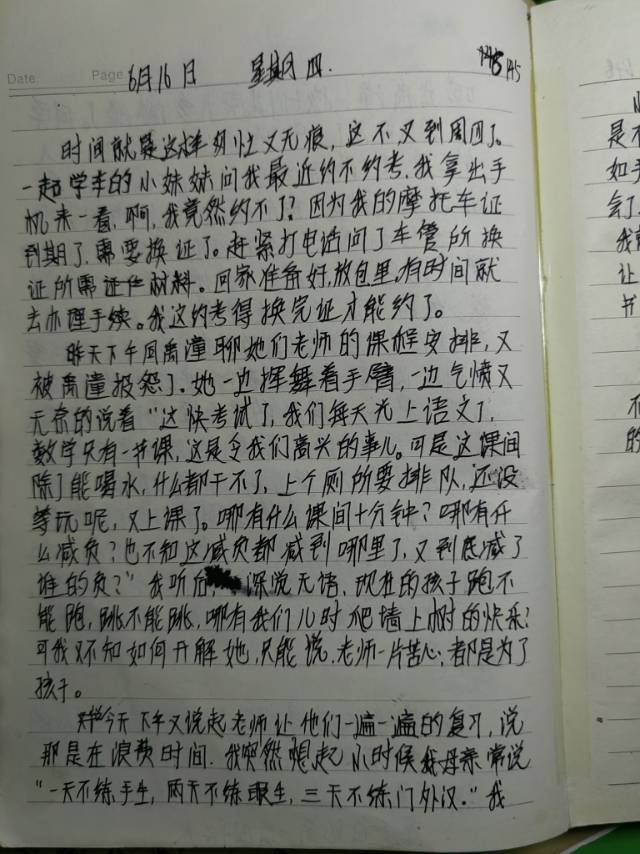 Date: Page 6月16日 星期四. 145
时间就是这样匆忙又无痕，这不又到周四了。
一起学车的小妹妹问我最近约不约考，我拿出手
机来一看，啊，我竟然约不了？因为我的摩托车证
到期了，需要换证了。赶紧打电话问了车管所换
证所需证件材料。回家准备好，放包里，有时间就
去办理手续。我这约考得换完证才能约了。
昨天下午同禹潼聊她们老师的课程安排，又
被禹潼报怨了。她一边挥舞着手臂，一边气愤又
无奈的说着“这快考试了，我们每天光上语文了，
数学只有一节课，这是令我们高兴的事儿。可是这课间
除了能喝水，什么都干不了，上个厕所要排队，还没
等玩呢，又上课了。哪有什么课间十分钟？哪有什
么减负？也不知这减负都减到哪里了，又到底减了
谁的负？”我听后深觉无语，现在的孩子跑不
能跑，跳不能跳，哪有我们儿时爬墙上树的快乐？
可我又不知如何开解她，只能说，老师一片苦心，都是为了
孩子。
今天下午又说起老师让他们一遍一遍的复习，说
那是在浪费时间。我突然想起小时候我母亲常说
“一天不练手生，两天不练眼生，三天不练门外汉。”我
是不
如手
会了
我
让
书
不
的